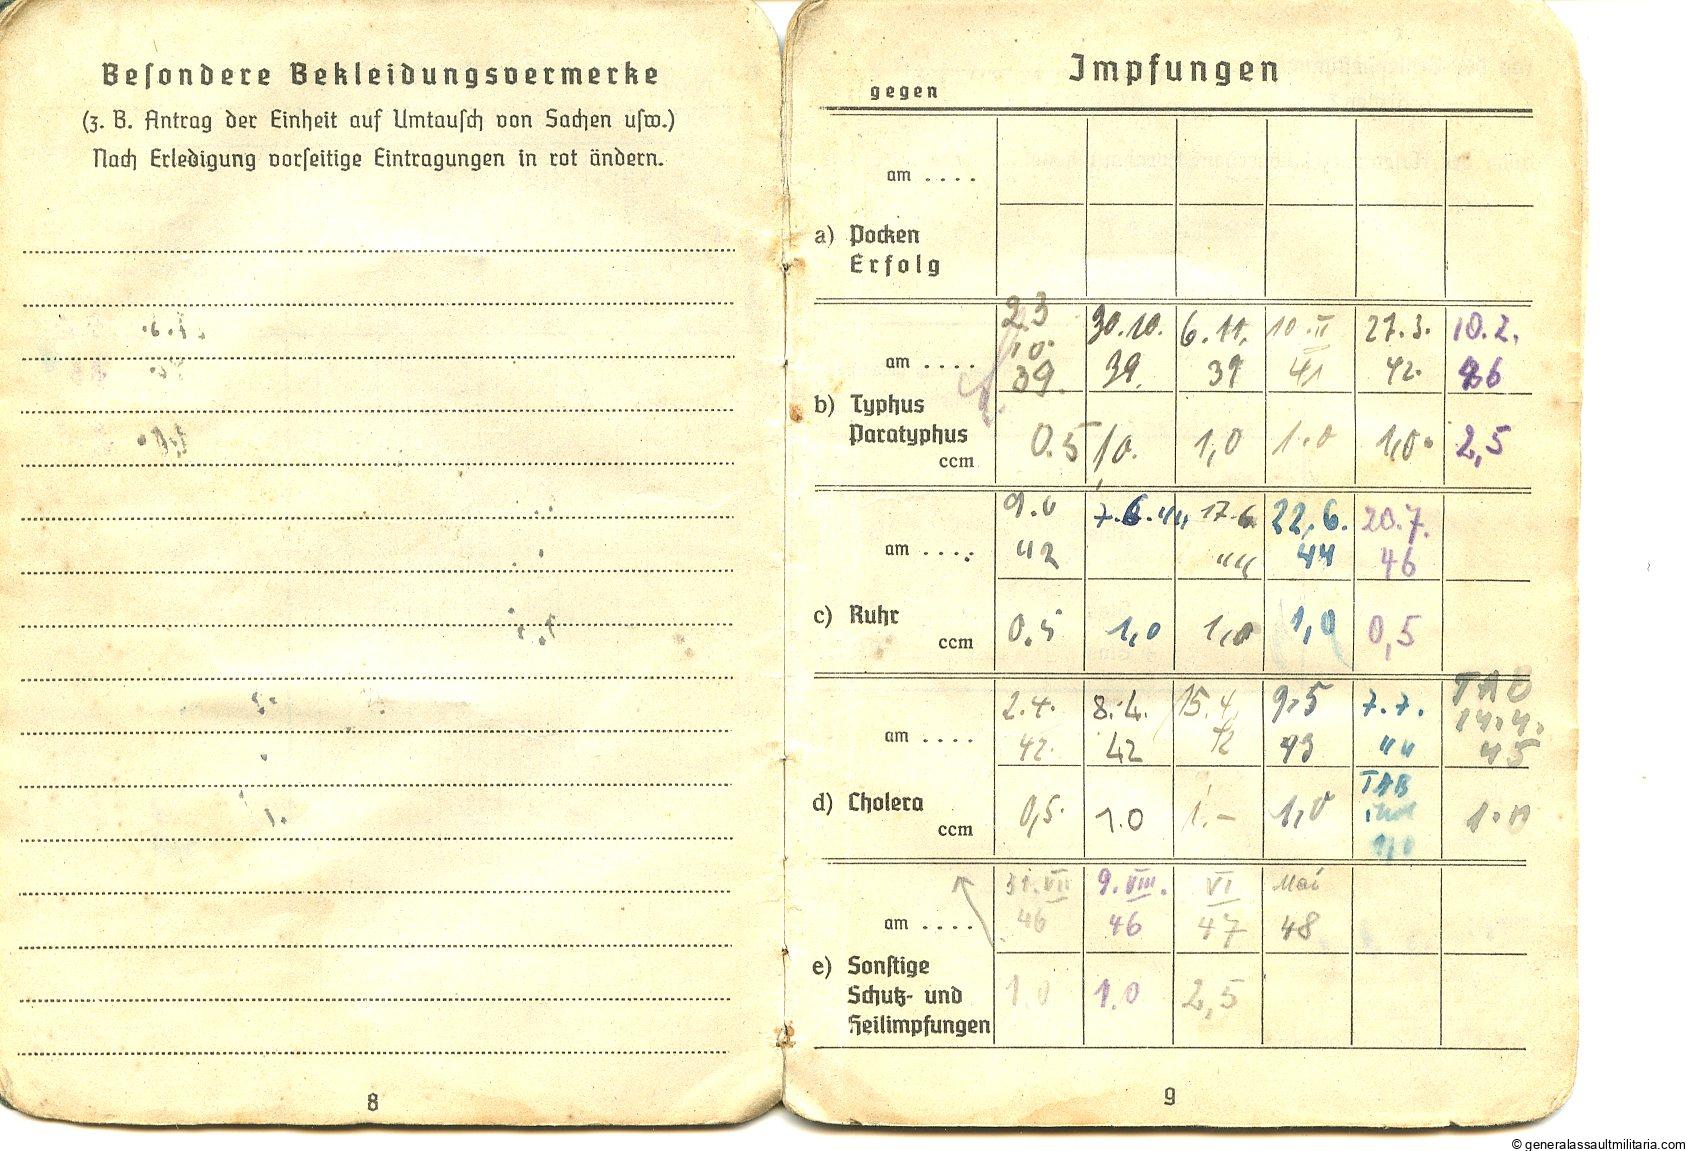 Besondere Bekleidungsvermerke
(z. B. Antrag der Einheit auf Umtausch von Sachen usw.)
Nach Erledigung vorseitige Eintragungen in rot ändern.
8
Impfungen
gegen
am . . . .
a) Pocken
Erfolg
23 30.10. 6.11. 10.II 27.3. 10.2.
10.
am . . . . 39. 39. 39 41 42. 46
b) Typhus
Paratyphus
ccm
0.5 1,0. 1,0 1.0 1,0. 2,5
9.6 7.6.44 17.6 22.6. 20.7.
am . . . . 42 44 44 46
c) Ruhr
ccm
0.5 1,0 1,0 1,0 0,5
TAB
2.4. 8.4. 15.4. 9.5 7.7. 14.4.
am . . . . 42. 42 42 43 44 45
d) Cholera
ccm
0,5. 1.0 1.- 1,0 TAB 1.0
1,0
31.VII 9.VIII. VI Mai
am . . . . 46 46 47 48
e) Sonstige
Schutz- und
Heilimpfungen
1.0 1.0 2,5
9
© generalassaultmilitaria.com